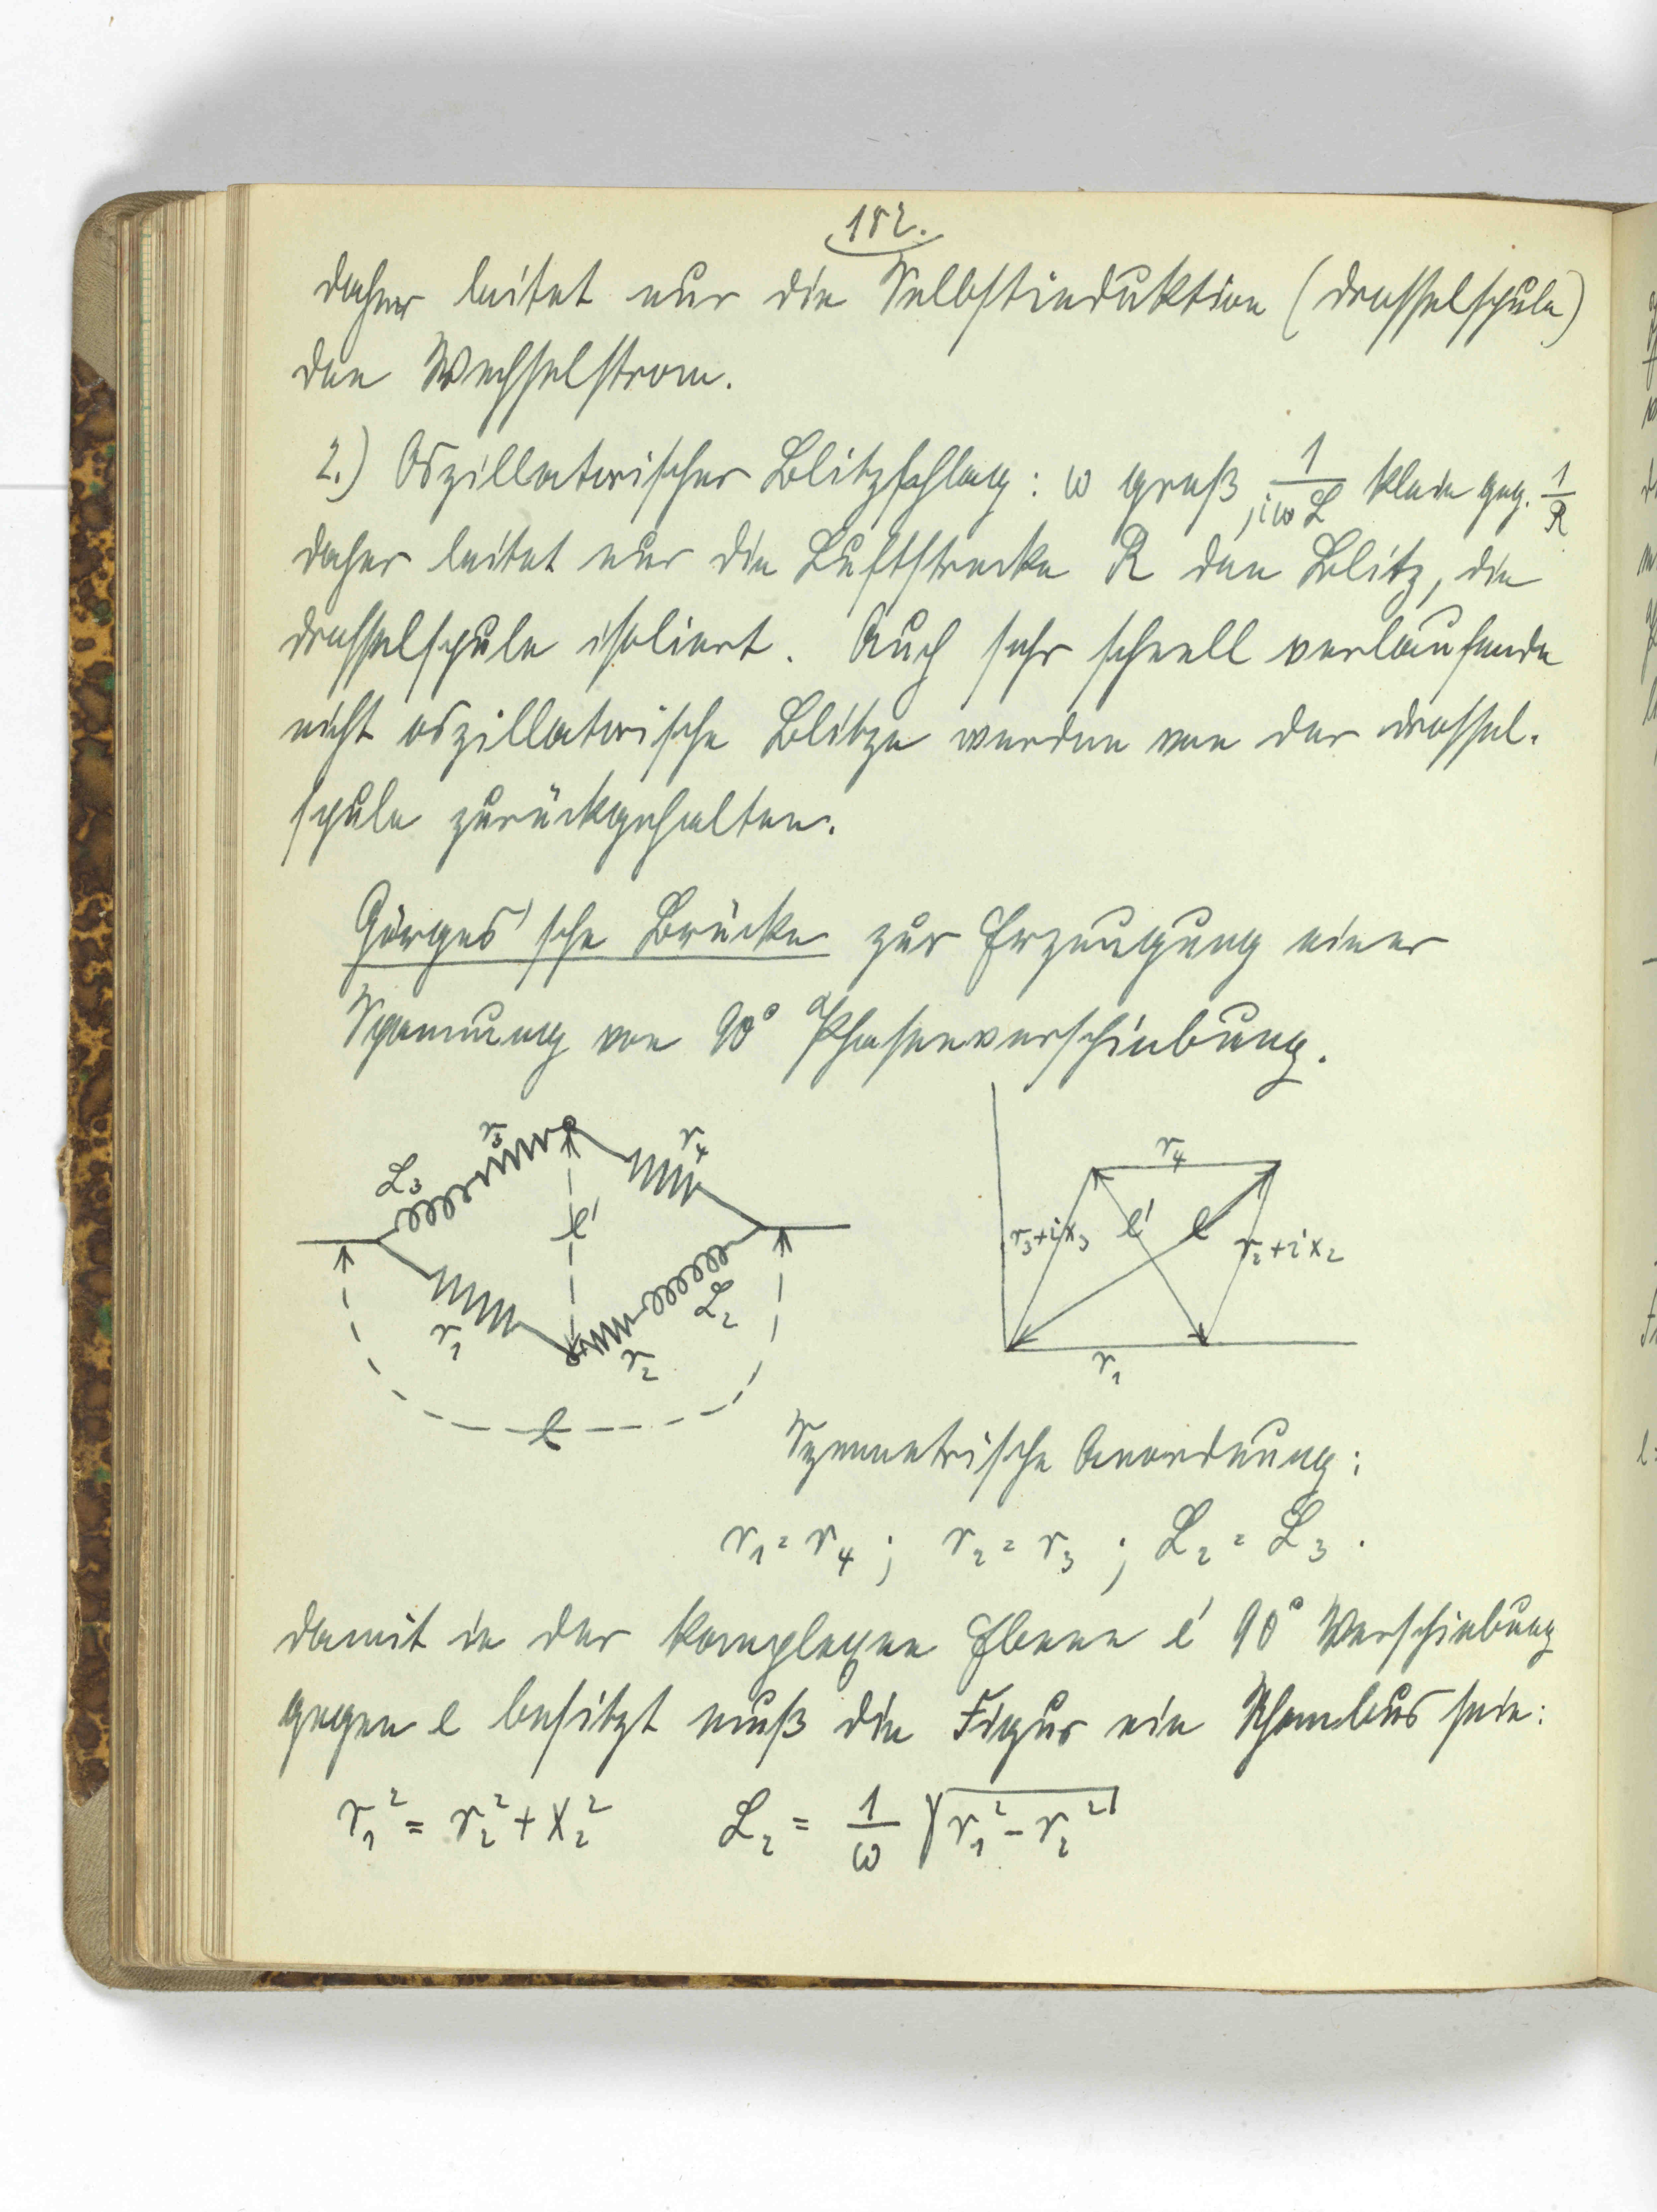 182.
daher leitet nur die Selbstinduktion (Drosselspule)
den Wechselstrom.
2.) Oszillatorischer Blitzschlag: ω groß, 1/(iωL) klein geg. 1/R
daher leitet nur die Luftstrecke R den Blitz, die
Drosselspule isoliert. Auch sehr schnell verlaufende
nicht oszillatorische Blitze werden von der Drossel-
spule zurückgehalten.
Görges'sche Brücke zur Erzeugung einer
Spannung von 90° Phasenverschiebung.
L₃ r₃ r₄
e'
r₁ r₂ L₂
e
r₄
r₃+ix₃ e' e r₂+ix₂
r₁
Symmetrische Anordnung:
r₁ = r₄ ; r₂ = r₃ ; L₂ = L₃ .
Damit in der komplexen Ebene e' 90° Verschiebung
gegen e besitzt muß die Figur ein Rhombus sein:
r₁² = r₂² + x₂² L₂ = 1/ω √(r₁² - r₂²)